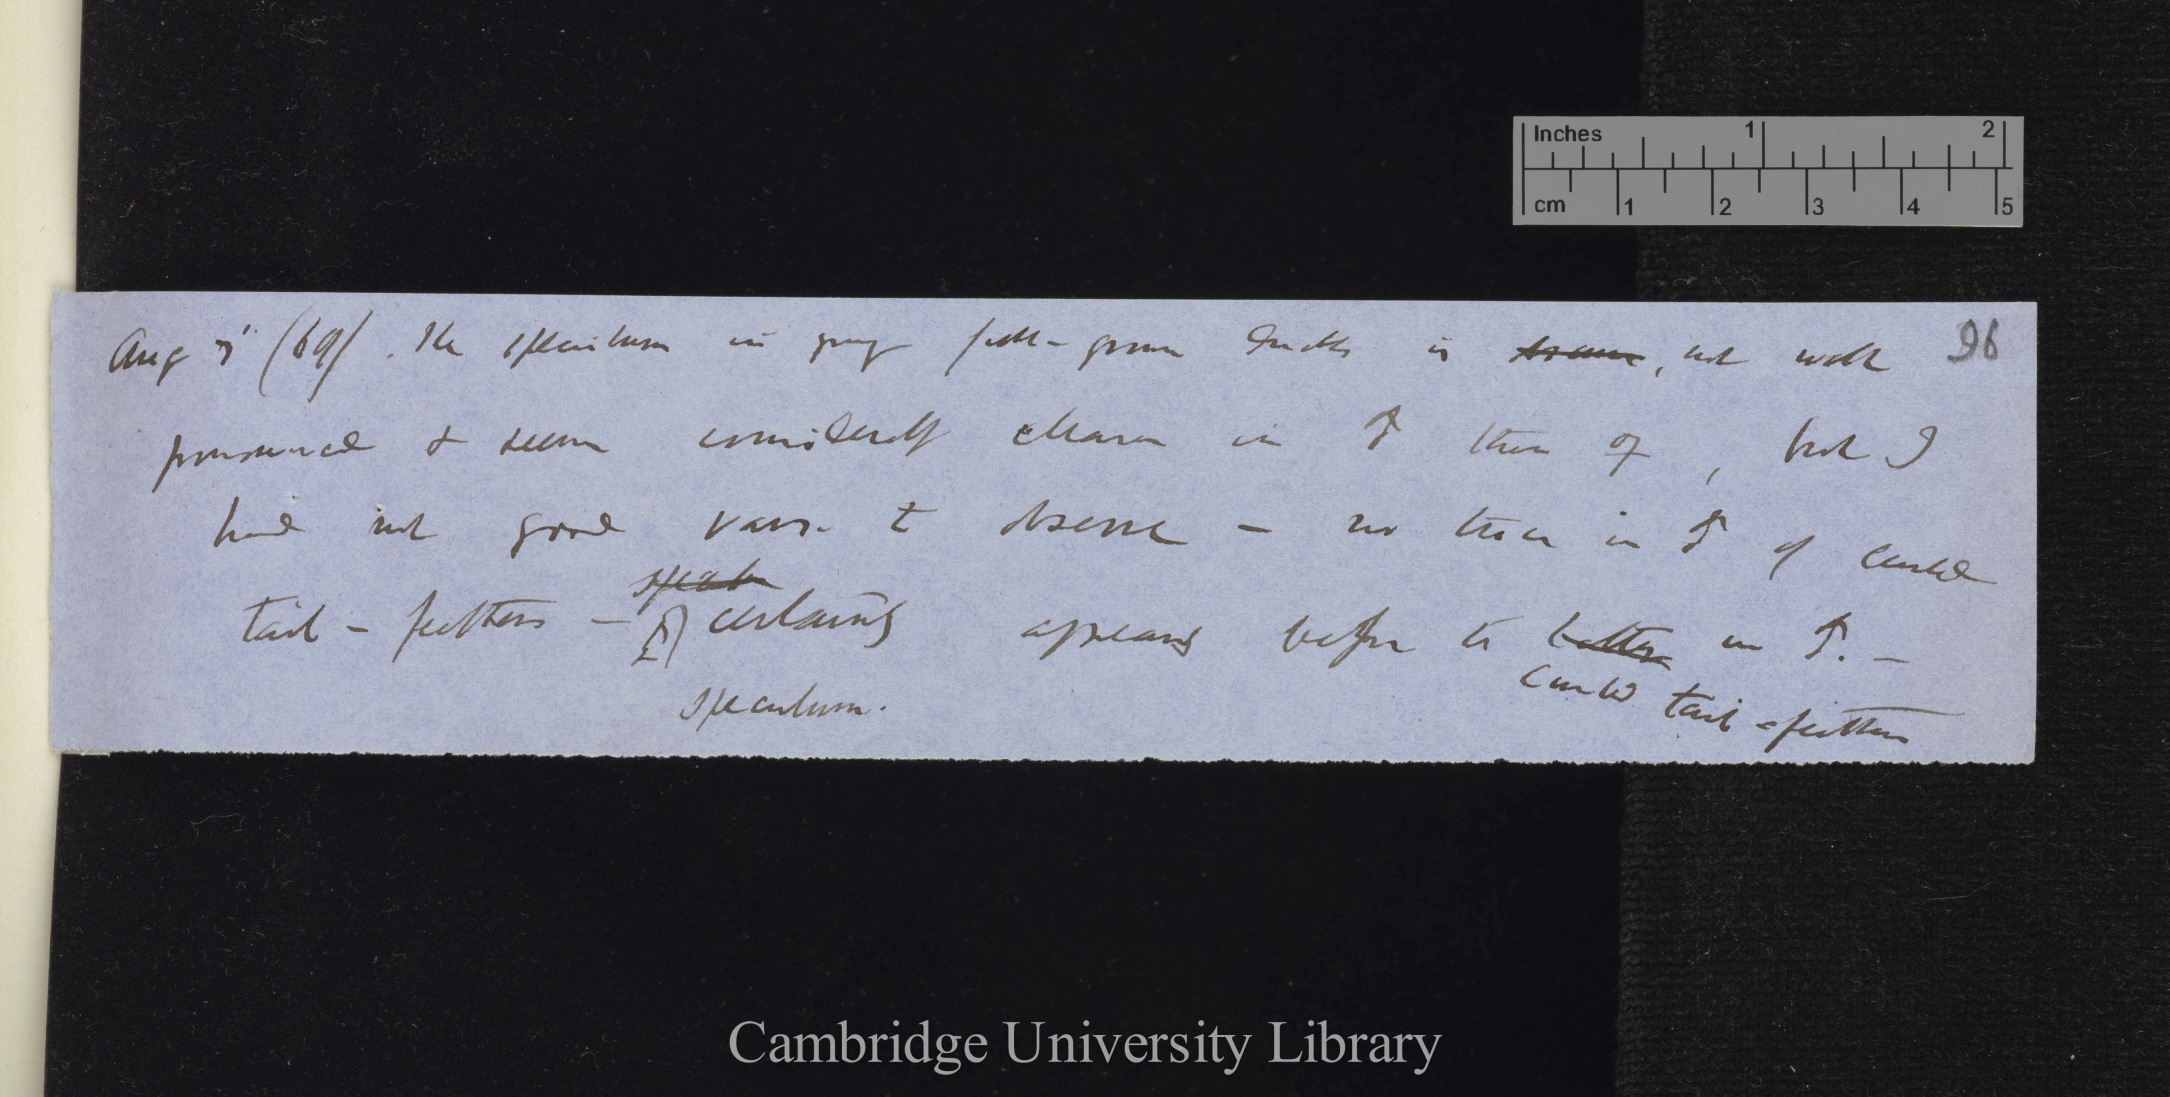 Inches 1 2
cm 1 2 3 4 5
96
Aug 7' (69). The speculum in young full-grown Ducks is , not well
pronounced & seems considerably clearer in ♂ than , but I
had not good to observe — no trace in ♂ of curled
tail-feathers — specul certainly appears before the in ♂. —
curled tail-feathers
speculum.
Cambridge University Library